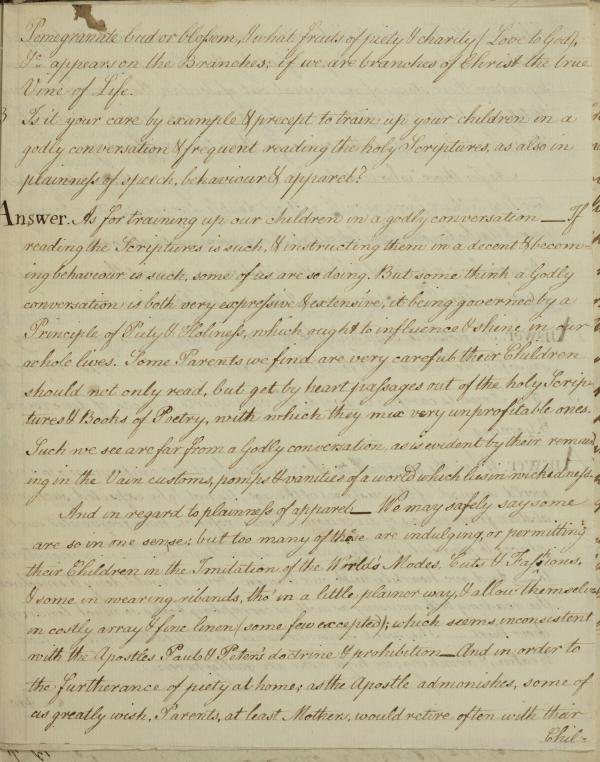 Pomegranate bud or blossom, & what fruits of piety & charity (Love to God),
&c appears on the Branches; if we are branches of Christ the true
Vine of Life.
3 Is it your care by example & precept to train up your children in a
godly conversation & frequent reading the holy Scriptures, as also in
plainness of speech, behaviour & apparel?
Answer. As for training up our children in a godly conversation — If
reading the Scriptures is such, & instructing them in a decent & becom-
ing behaviour is such, some of us are so doing. But some think a Godly
conversation is both very expressive & extensive, it being governed by a
Principle of Piety & Holiness, which ought to influence & shine in our
whole lives. Some Parents we find are very careful their Children
should not only read, but get by heart passages out of the holy Scrip-
tures & Books of Poetry, with which they mix very unprofitable ones.
Such we see are far from a Godly conversation, as is evident by their remain-
ing in the Vain customs, pomps & vanities of a world which lies in wickedness.
And in regard to plainness of apparel — We may safely say some
are so in one sense; but too many of those are indulging, or permitting
their Children in the Imitation of the World's Modes, Cuts & Fassions,
& some in wearing ribands, tho' in a little plainer way, & allow themselves
in costly array & fine linen (some few excepted); which seems inconsistent
with the Apostles Paul & Peter's doctrine & prohibition — And in order to
the furtherance of piety at home, as the Apostle admonishes, some of
us greatly wish, Parents, at least Mothers, would retire often with their
Chil-